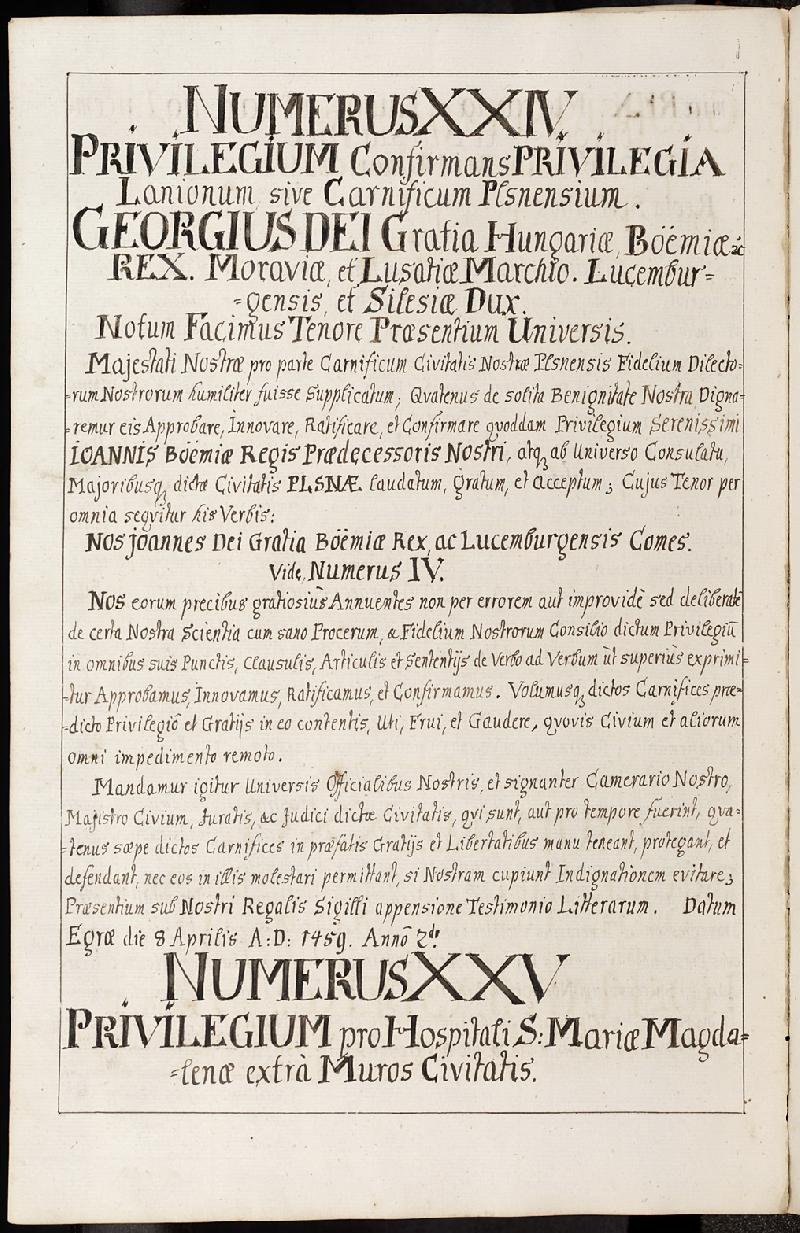 NUMERUS XXIV
PRIVILEGIUM Confirmans PRIVILEGIA
Lanionum, sive Carnificum Plsnensium.
GEORGIUS DEI Gratia Hungariæ, Böëmiæ &c
REX. Moraviæ, et Lusatiæ Marchio. Lucembur=
=gensis, et Silesiæ Dux.
Notum Facimus Tenore Præsentium Universis.
Majestati Nostræ pro parte Carnificum Civitatis Nostræ Plsnensis Fidelium Dilecto=
=rum Nostrorum humiliter fuisse Supplicatum; Qvatenus de solita Benignitate Nostra Digna=
=remur eis Approbare, Innovare, Ratificare, et Confirmare qvoddam Privilegium Serenissimi
IOANNIS Böëmiæ Regis Prædecessoris Nostri, atq, ab Universo Consulatu,
Majoribusq, dictæ Civitatis PLSNÆ laudatum, gratum, et acceptum; Cujus Tenor per
omnia seqvitur his Verbis:
NOS Joannes Dei Gratia Böëmiæ Rex, ac Lucemburgensis Comes.
Vide, Numerus IV.
NOS eorum precibus gratiosiùs Annuentes non per errorem aut improvidè sed deliberatè
de certa Nostra Scientia cum sano Procerum, & Fidelium Nostrorum Consilio dictum Privilegiū
in omnibus suis Punctis, Clausulis, Articulis et Sententijs de Verbo ad Verbum ùt superiùs exprimi=
=tur Approbamus, Innovamus, Ratificamus, et Confirmamus. Volumusq, dictos Carnifices præ=
=dicto Privilegiô et Gratijs in eo contentis, Uti, Frui, et Gaudere, qvovis Civium et aliorum
omni impedimento remoto.
Mandamur igitur Universis Officialibus Nostris, et signanter Camerario Nostro,
Majistro Civium, Juratis, ac Judici dictæ Civitatis, qvi sunt, aut pro tempore fuerint, qva=
=tenus sæpe dictos Carnifices in præfatis Gratijs et Libertatibus manu teneant, protegant, et
defendant, nec eos in illis molestari permittant, si Nostram cupiunt Indignationem evitare;
Præsentium sub Nostri Regalis Sigilli appensione Testimonio Litterarum. Datum
Egræ die 8 Aprilis A:D: 1459. Annô 2do
NUMERUS XXV
PRIVILEGIUM pro Hospitali S: Mariæ Magda=
=lenæ extrà Muros Civitatis.